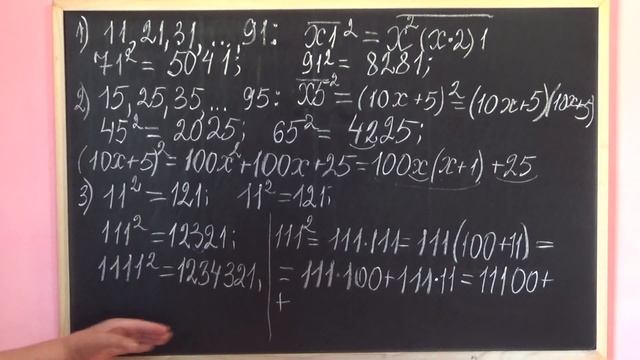 1) 11, 21, 31, ..., 91: x1² = x²(x·2)1
71² = 5041; 91² = 8281;
2) 15, 25, 35... 95: x5² = (10x+5)² = (10x+5)(10x+5)
45² = 2025; 65² = 4225;
(10x+5)² = 100x² + 100x + 25 = 100x(x+1) + 25
3) 11² = 121; 11² = 121;
111² = 12321;
1111² = 1234321,
111² = 111·111 = 111(100+11) =
= 111·100 + 111·11 = 11100 +
+